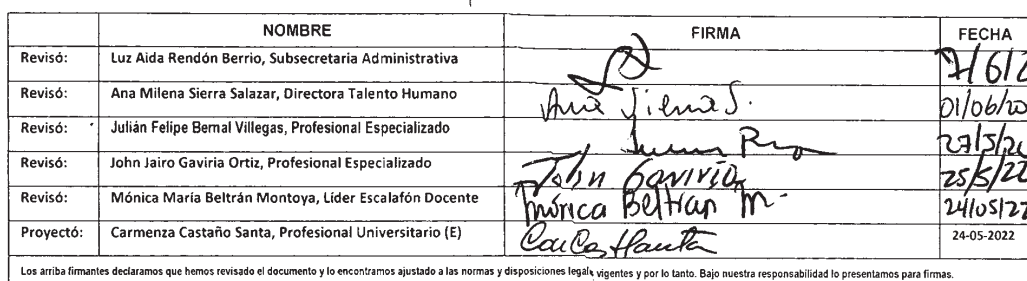 NOMBRE FIRMA FECHA
Revisó: Luz Aida Rendón Berrio, Subsecretaria Administrativa 7/6/2
Revisó: Ana Milena Sierra Salazar, Directora Talento Humano Ana Sierra S. 01/06/20
Revisó: Julián Felipe Bernal Villegas, Profesional Especializado 27/5/20
Revisó: John Jairo Gaviria Ortiz, Profesional Especializado John Gaviria 25/5/22
Revisó: Mónica María Beltrán Montoya, Líder Escalafón Docente Mónica Beltran M. 24/05/22
Proyectó: Carmenza Castaño Santa, Profesional Universitario (E) 24-05-2022
Los arriba firmantes declaramos que hemos revisado el documento y lo encontramos ajustado a las normas y disposiciones legales vigentes y por lo tanto. Bajo nuestra responsabilidad lo presentamos para firmas.